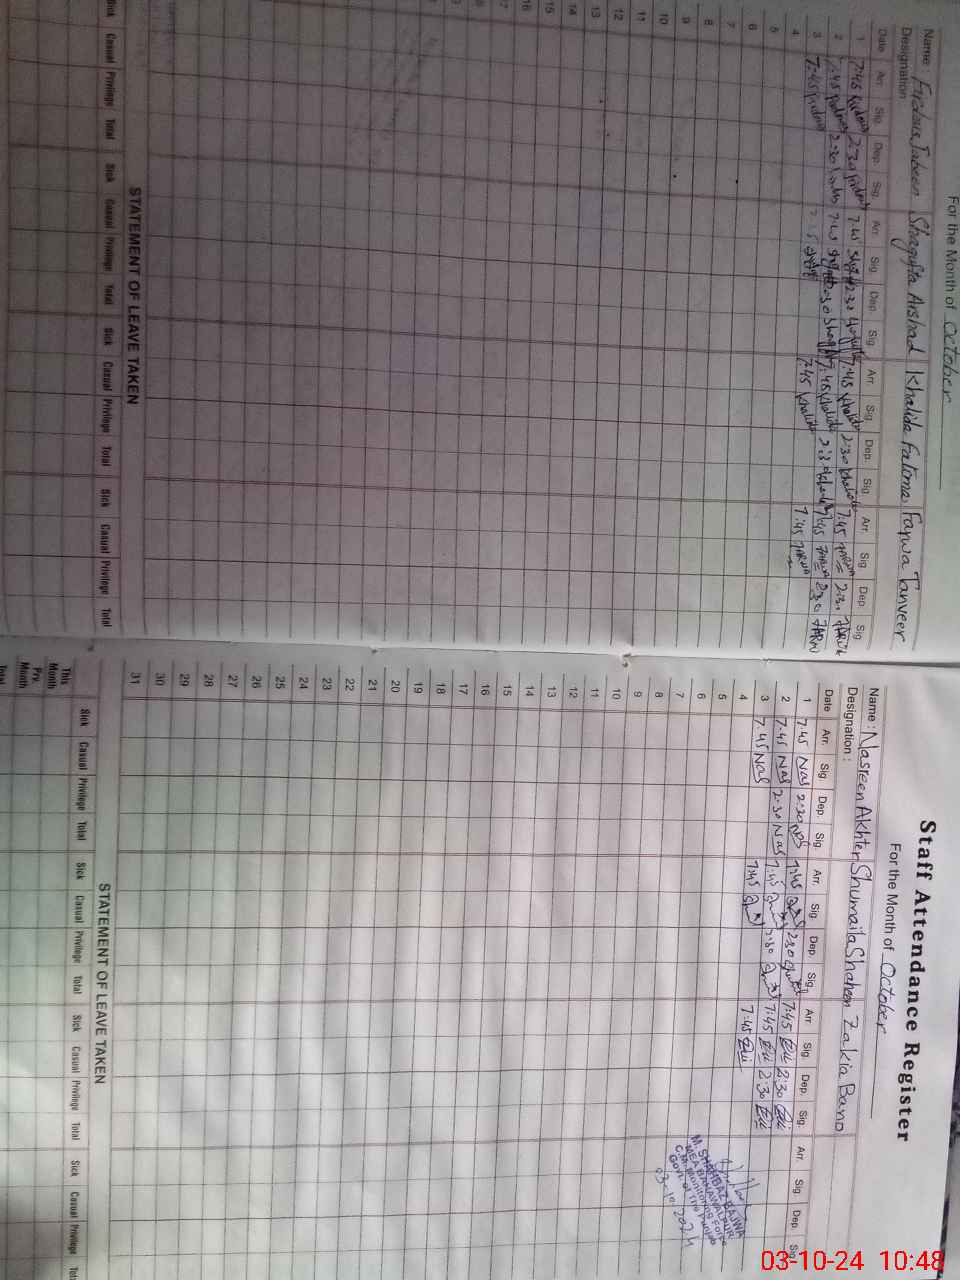 For the Month of October
Name: Firdous Jabeen Shagufta Arshad Khalida Fatima Farwa Tanveer
Designation
Date Arr. Sig. Dep. Sig. Arr. Sig. Dep. Sig. Arr. Sig. Dep. Sig. Arr. Sig. Dep. Sig
1 7:45 Firdous 2:30 Firdous 7:45 2:30 7:45 Khalida 2:30 Khalida 7:45 FARWA 2:30 FARWA
2 7:45 Firdous 2:30 7:45 2:30 7:45 Khalida 2:30 Khalida 7:45 FARWA 2:30 FARWA
3 7:45 Firdous 7:45 Khalida 7:45 FARWA
4
5
6
7
8
9
10
11
12
13
14
15
16
17
STATEMENT OF LEAVE TAKEN
Sick Casual Privilege Total Sick Casual Privilege Total Sick Casual Privilege Total Sick Casual Privilege Total
Staff Attendance Register
For the Month of October
Name: Nasreen Akhter Shumaila Shaheen Zakia Bano
Designation:
Date Arr. Sig Dep. Sig. Arr. Sig. Dep. Sig. Arr Sig. Dep. Sig. Arr. Sig. Dep. Sig
1 7:45 Nas 2:30 Nas 7:45 2:30 7:45 2:30
2 7:45 Nas 2:30 Nas 7:45 2:30 7:45 2:30
3 7:45 Nas 7:45 7:45
4
5
6
7
8
9
10
11
12
13
14
15
16
17
18
19
20
21
22
23
24
25
26
27
28
29
30
31
M. SHAHBAZ BAJWA
MEA BAHAWALPUR
C.M. Monitoring Force
Govt. of The Punjab
03-10-2024
STATEMENT OF LEAVE TAKEN
Sick Casual Privilege Total Sick Casual Privilege Total Sick Casual Privilege Total Sick Casual Privilege Total
This Month
Prv. Month
Total
03-10-24 10:48